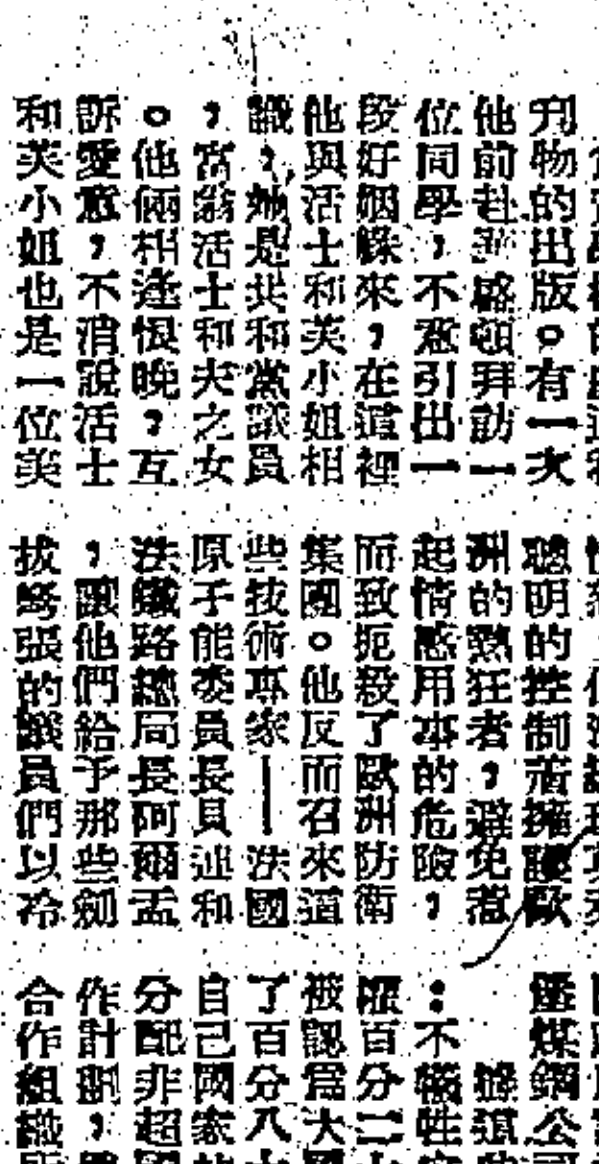 刋物的出版。有一次
他前赴華盛頓拜訪一
位同學,不意引出一
段好姻緣來,在這裡
他與活士和芙小姐相
識,她是共和黨議員
,富翁活士和夫之女
。他倆相逢恨晚,互
訴愛意,不消說活士
和芙小姐也是一位美
聰明的控制着擁護歐
洲的熱狂者,避免惹
起情感用事的危險,
而致扼殺了歐洲防衛
集團。他反而召來這
些技術專家——法國
原子能委員長貝 和
法鐵路總局長阿爾孟
,讓他們給予那些劍
拔弩張的議員們以冷
煤鋼公
據這
:不犧牲
百分二
被認爲大
了百分八
自己國家
分配非超
作計劃,
合作組織